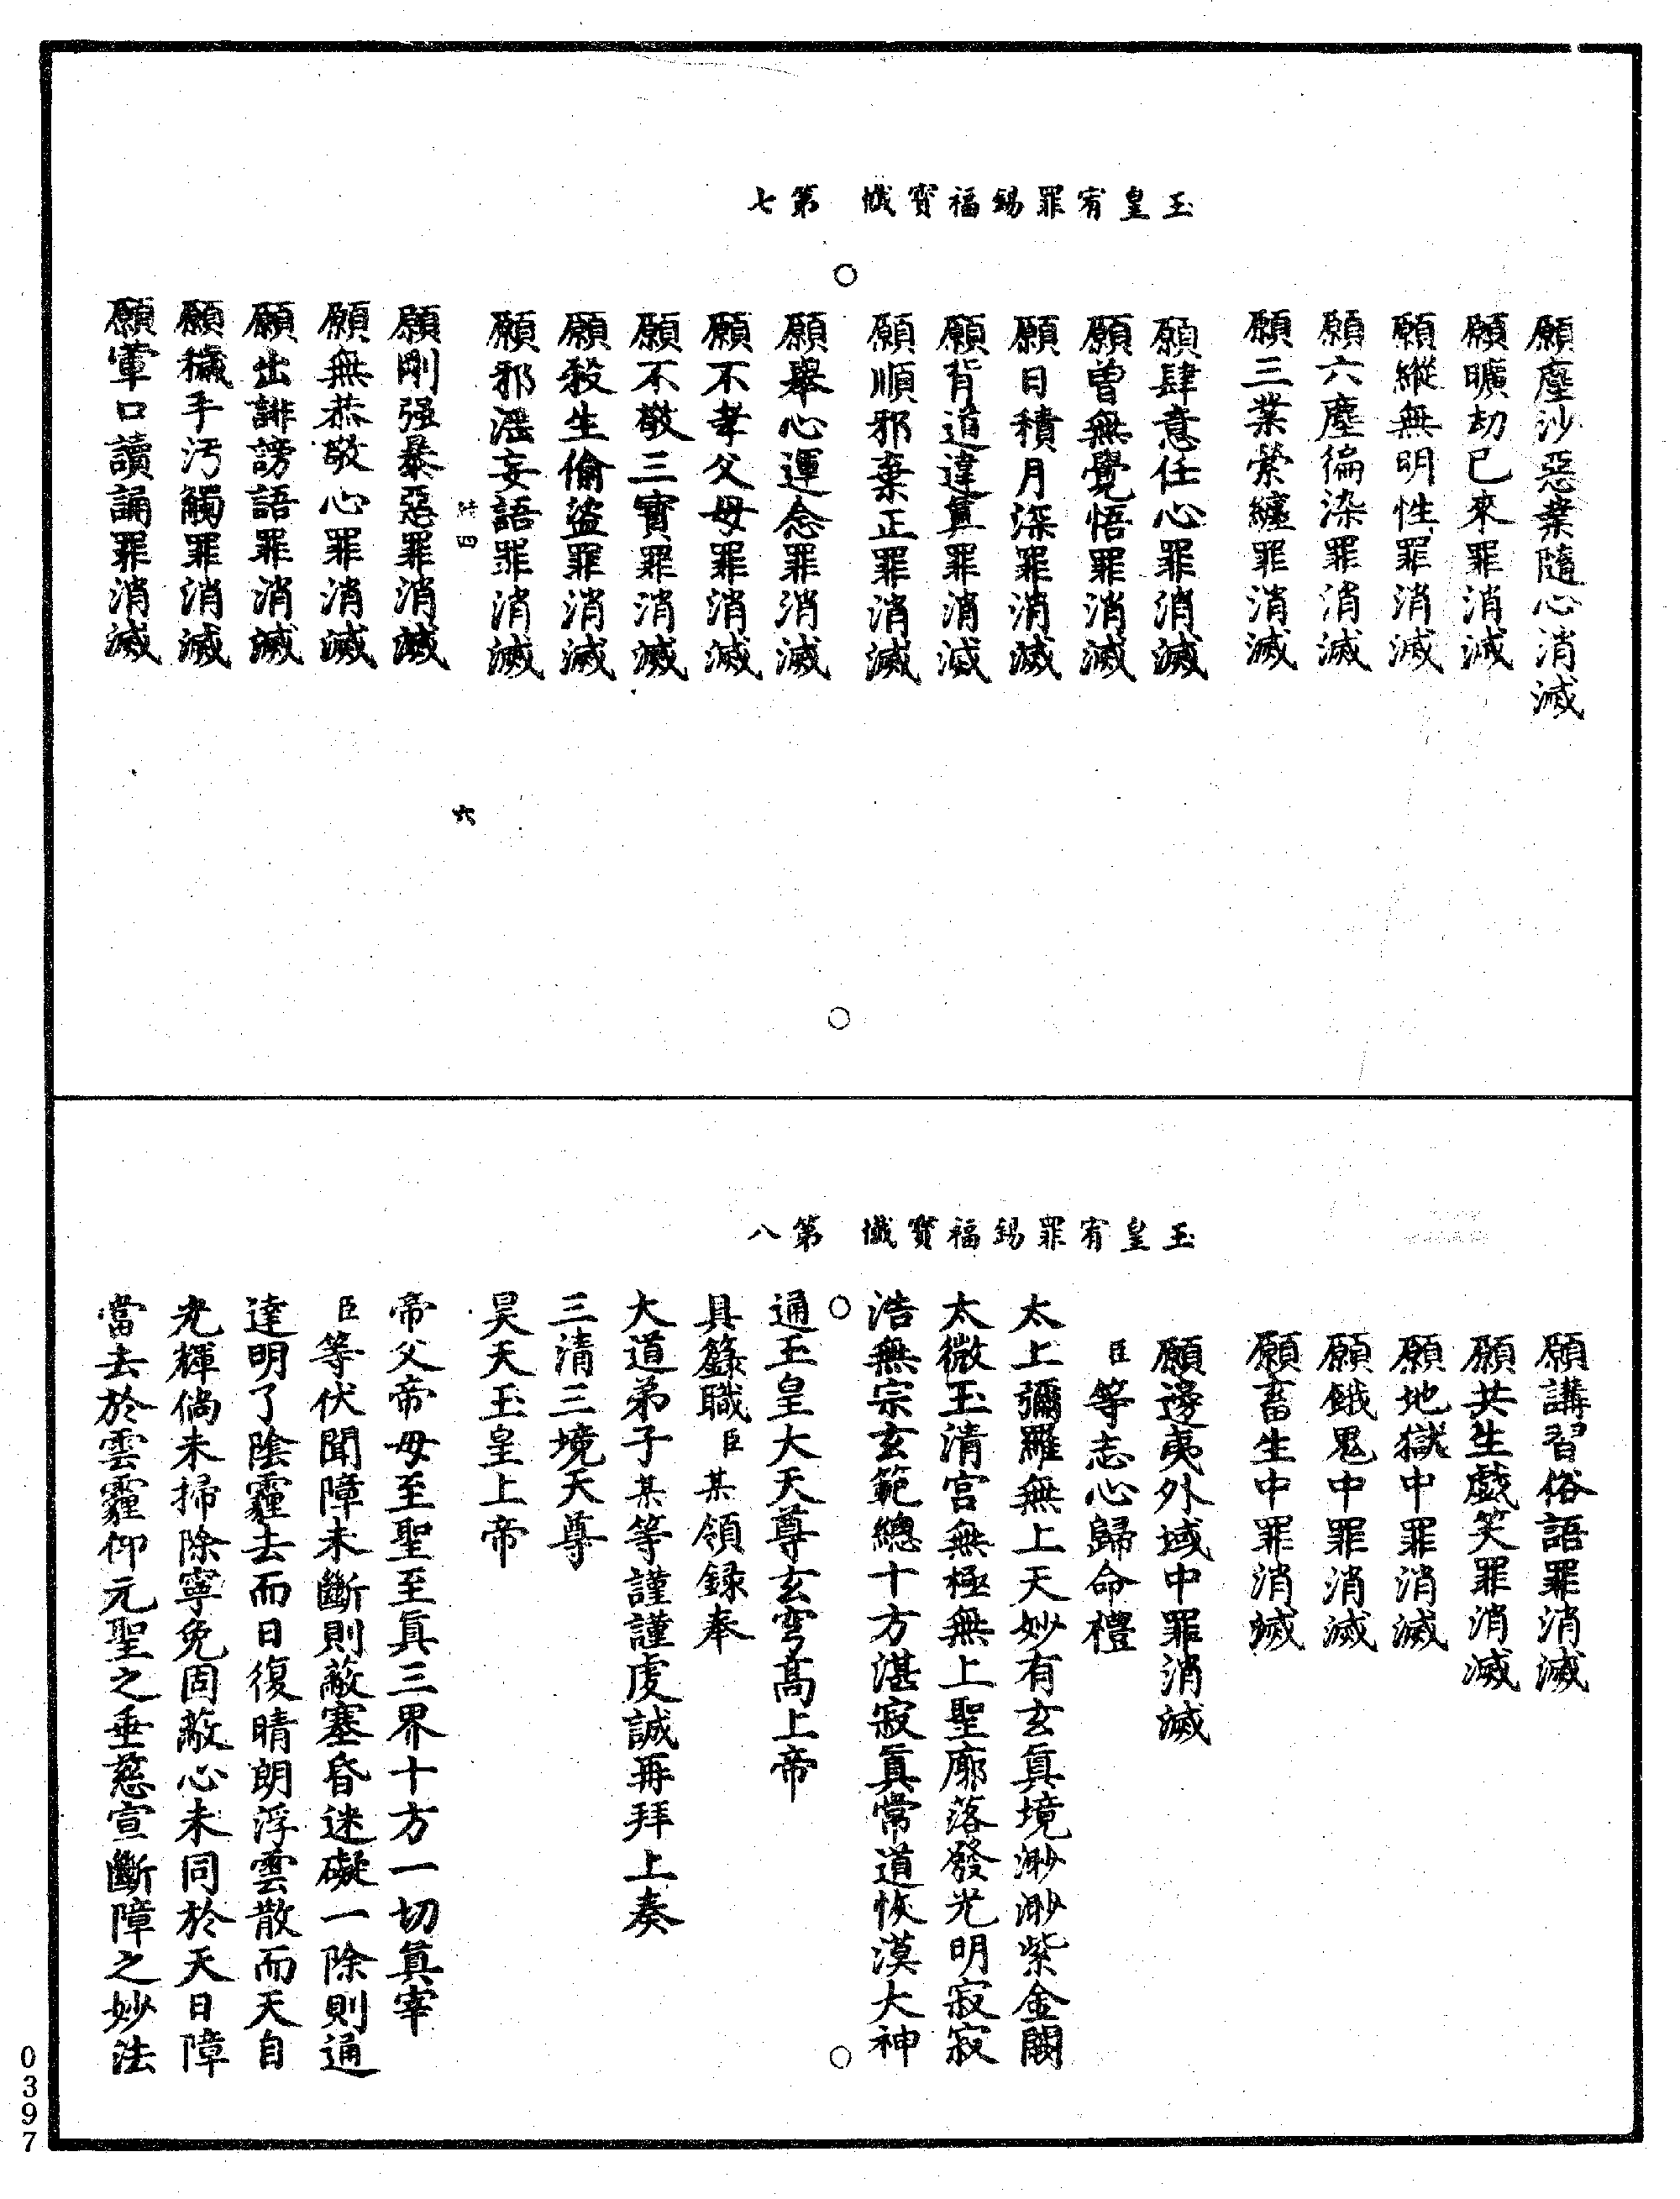 玉皇宥罪錫福寶懺　第七
願塵沙惡業隨心消滅
願曠劫已來罪消滅
願縱無明性罪消滅
願六塵徧染罪消滅
願三業縈纏罪消滅
願肆意任心罪消滅
願曾無覺悟罪消滅
願日積月深罪消滅
願背道違真罪消滅
願順邪棄正罪消滅
願舉心運念罪消滅
願不孝父母罪消滅
願不敬三寶罪消滅
願殺生偷盜罪消滅
願邪滛妄語罪消滅
四　六
願剛强暴惡罪消滅
願無恭敬心罪消滅
願出誹謗語罪消滅
願穢手汚觸罪消滅
願葷口讀誦罪消滅
玉皇宥罪錫福寶懺　第八
願講習俗語罪消滅
願共生戲笑罪消滅
願地獄中罪消滅
願餓鬼中罪消滅
願畜生中罪消滅
願邊夷外域中罪消滅
臣等志心歸命禮
太上彌羅無上天妙有玄眞境渺渺紫金闕
太微玉清宮無極無上聖廓落發光明寂寂
浩無宗玄範總十方湛寂眞常道恢漠大神
通玉皇大天尊玄穹高上帝
具籙職臣某領錄奉
大道弟子某等謹謹虔誠再拜上奏
三清三境天尊
昊天玉皇上帝
帝父帝母至聖至眞三界十方一切眞宰
臣等伏聞障未斷則蔽塞昏迷礙一除則通
達明了陰霾去而日復晴朗浮雲散而天自
光輝倘未掃除寧免固蔽心未同於天日障
當去於雲霾仰元聖之垂慈宣斷障之妙法
0397